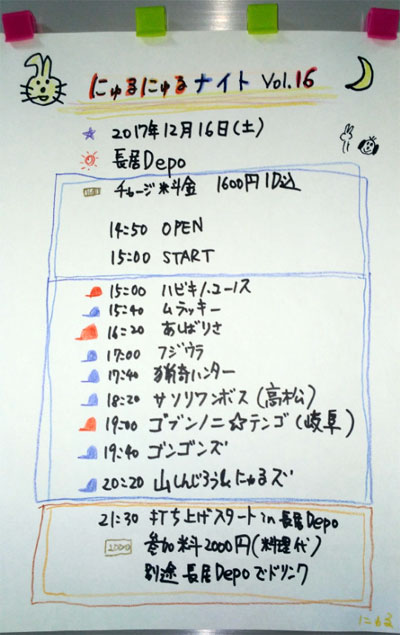 にゅるにゅるナイト Vol.16
2017年12月16日(土)
長居Depo
チャージ料金 1600円1D込
14:50 OPEN
15:00 START
15:00 ハビキノユーノス
15:40 ムラッキー
16:20 あしばりさ
17:00 フジウラ
17:40 猟奇ハンター
18:20 サソリワンボス(高松)
19:00 ゴブンノニ☆テンゴ(岐阜)
19:40 ゴンゴンズ
20:20 山しんじろう&にゅるズ
21:30 打ち上げスタートin長居Depo
2000 参加料2000円(料理代)
別途 長居Depoでドリンク